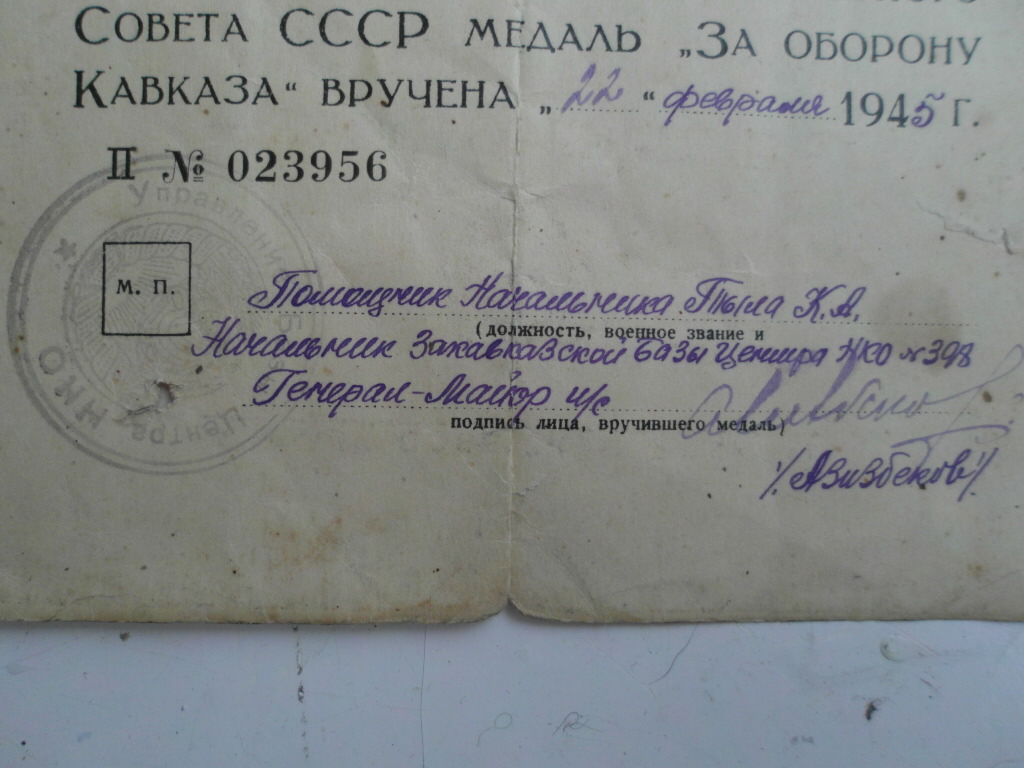 Совета СССР медаль „За оборону
Кавказа“ вручена „22“ февраля 1945 г.
II № 023956
Управление
Центра НКО
М. П.
Помощник Начальника Тыла К.А.
(должность, военное звание и
Начальник Закавказской базы Центра НКО № 398
Генерал-Майор и/с
подпись лица, вручившего медаль)
/Азизбеков/